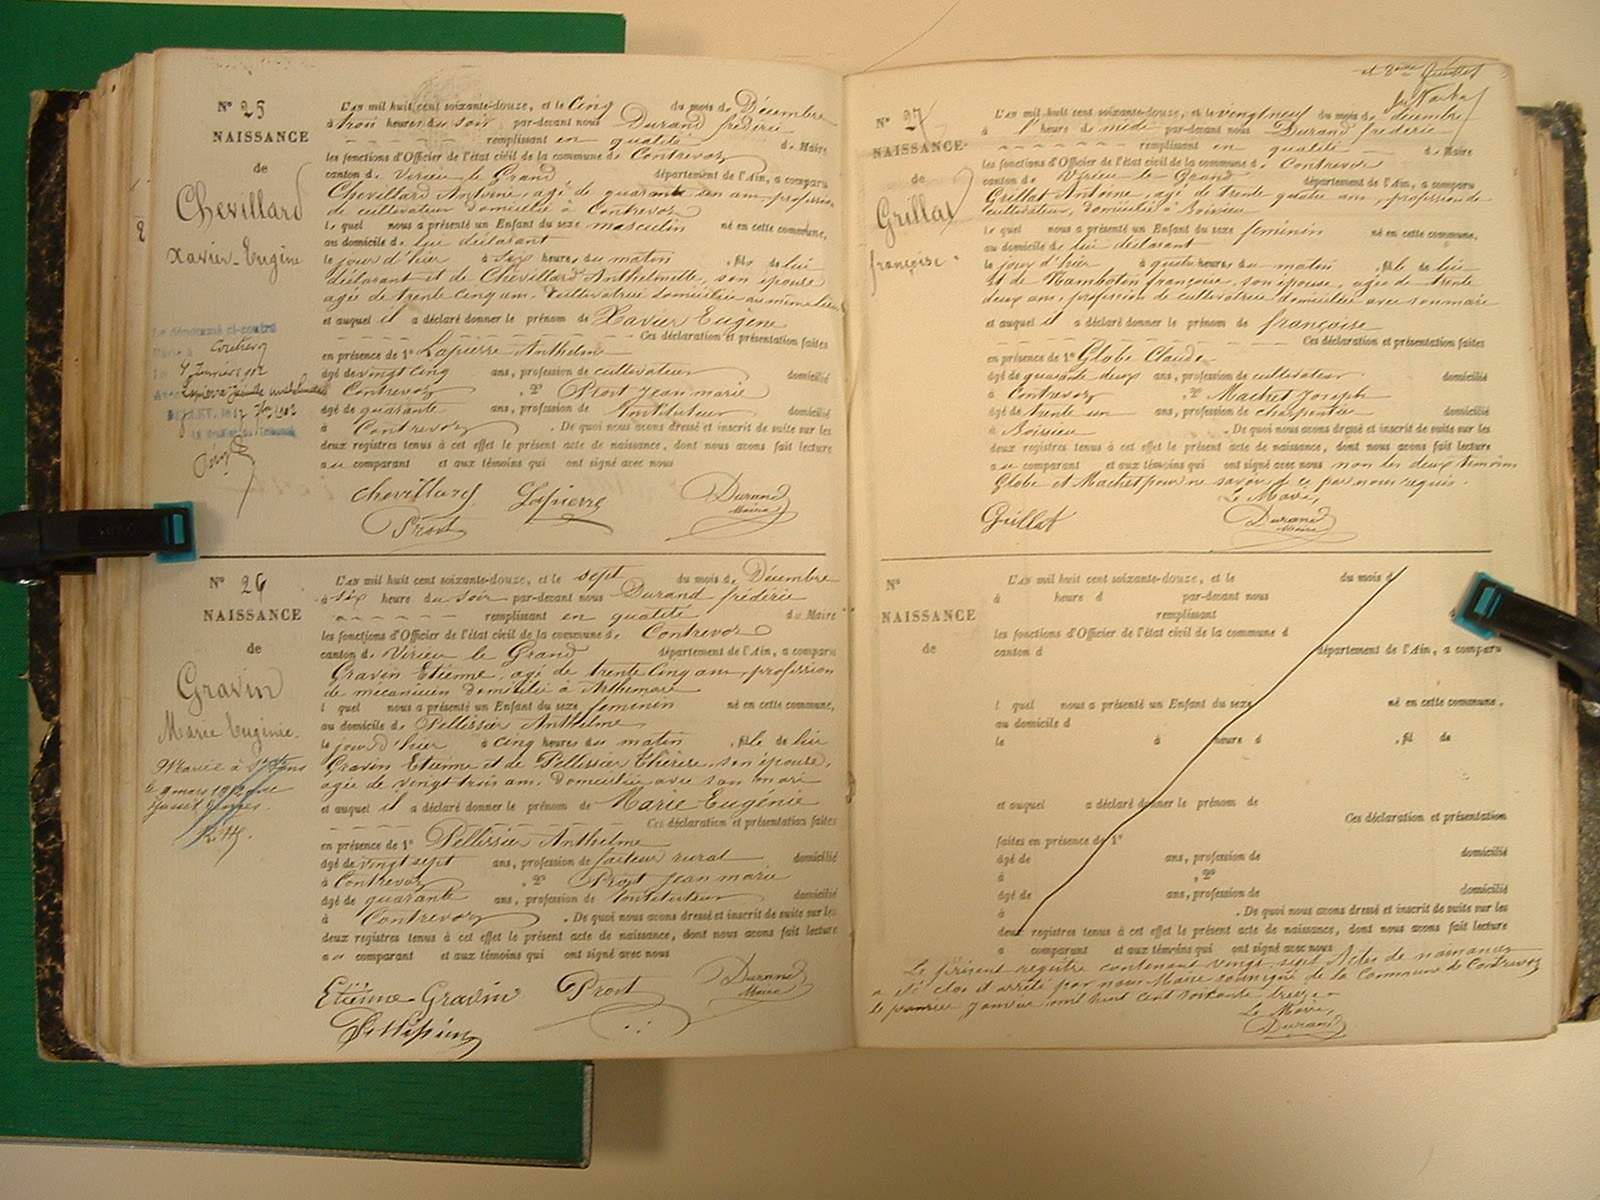 N° 25
NAISSANCE
de
Chevillard
Xavier-Eugène
Le dénommé ci-contre
Contrevoz
4 Janvier
L'AN mil huit cent soixante-douze, et le Cinq du mois de Décembre
à trois heures du soir par-devant nous Durand frédéric
remplissant en qualité de Maire
les fonctions d'Officier de l'état civil de la commune de Contrevoz
canton de Virieu le Grand département de l'Ain, a comparu
Chevillard Antoine, agé de quarante un ans, profession
de cultivateur domicilié à Contrevoz
le quel nous a présenté un Enfant du sexe masculin né en cette commune,
au domicile de lui déclarant
le jour d'hier à six heures du matin, fils de lui
déclarant et de Chevillard Anthelmette, son épouse
agée de trente cinq ans, cultivatrice domiciliée au même lieu
et auquel il a déclaré donner le prénom de Xavier Eugène
Ces déclaration et présentation faites
en présence de 1° Lapierre Anthelme
âgé de vingt cinq ans, profession de cultivateur domicilié
à Contrevoz, 2° Prost Jean marie
âgé de quarante ans, profession de Instituteur domicilié
à Contrevoz. De quoi nous avons dressé et inscrit de suite sur les
deux registres tenus à cet effet le présent acte de naissance, dont nous avons fait lecture
au comparant et aux témoins qui ont signé avec nous
chevillard Lapierre Durand
Maire
Prost
N° 26
NAISSANCE
de
Gravin
Marie Eugénie.
Mariée à
le 9 mars
L'AN mil huit cent soixante-douze, et le sept du mois de Décembre
à six heure du soir par-devant nous Durand frédéric
remplissant en qualité de Maire
les fonctions d'Officier de l'état civil de la commune de Contrevoz
canton de Virieu le Grand département de l'Ain, a comparu
Gravin Etienne, agé de trente cinq ans, profession
de mécanicien domicilié à Arthemare
l quel nous a présenté un Enfant du sexe feminin né en cette commune,
au domicile de Pellissier Anthelme
le jour d'hier à cinq heures du matin, fille de lui
Gravin Etienne et de Pellissier Thérèse, son épouse,
agée de vingt trois ans, domiciliée avec son mari
et auquel il a déclaré donner le prénom de Marie Eugénie
Ces déclaration et présentation faites
en présence de 1° Pellissier Anthelme
âgé de vingt sept ans, profession de facteur rural domicilié
à Contrevoz, 2° Prost Jean marie
âgé de quarante ans, profession de Instituteur domicilié
à Contrevoz. De quoi nous avons dressé et inscrit de suite sur les
deux registres tenus à cet effet le présent acte de naissance, dont nous avons fait lecture
au comparant et aux témoins qui ont signé avec nous
Etienne Gravin Prost Durand
Maire
Pellissier
N° 27
NAISSANCE
de
Grillat
françoise
L'AN mil huit cent soixante-douze, et le vingt neuf du mois de décembre
à 1 heure de midi par-devant nous Durand frédéric
remplissant en qualité de Maire
les fonctions d'Officier de l'état civil de la commune de Contrevoz
canton de Virieu le Grand département de l'Ain, a comparu
Grillat Antoine, agé de trente quatre ans, profession de
cultivateur, domicilié à Boissieu
le quel nous a présenté un Enfant du sexe feminin né en cette commune,
au domicile de lui déclarant
le jour d'hier à quatre heures du matin, fille de lui
et de Mamboton françoise, son épouse, agée de trente
deux ans, profession de cultivatrice domiciliée avec son mari
et auquel il a déclaré donner le prénom de françoise
Ces déclaration et présentation faites
en présence de 1° Globe Claude
âgé de quarante deux ans, profession de cultivateur domicilié
à Contrevoz, 2° Machet Joseph
âgé de trente un ans, profession de charpentier domicilié
à Boissieu. De quoi nous avons dressé et inscrit de suite sur les
deux registres tenus à cet effet le présent acte de naissance, dont nous avons fait lecture
au comparant et aux témoins qui ont signé avec nous non les deux témoins
Globe et Machet pour ne savoir de ce par nous requis.
Le Maire,
Grillat Durand
Maire
N°
NAISSANCE
de
L'AN mil huit cent soixante-douze, et le du mois d
à heure d par-devant nous
remplissant
les fonctions d'Officier de l'état civil de la commune d
canton d département de l'Ain, a comparu
l quel nous a présenté un Enfant du sexe né en cette commune,
au domicile d
le à heure d, fil de
et auquel a déclaré donner le prénom de
Ces déclaration et présentation
faites en présence de 1°
âgé de ans, profession de domicilié
à, 2°
âgé de ans, profession de domicilié
à. De quoi nous avons dressé et inscrit de suite sur les
deux registres tenus à cet effet le présent acte de naissance, dont nous avons fait lecture
a comparant et aux témoins qui ont signé avec nous
Le présent registre contenant vingt-sept Actes de naissances
a été clos et arrêté par nous Maire soussigné de la Commune de Contrevoz
le premier Janvier mil huit cent soixante treize
Le Maire,
Durand